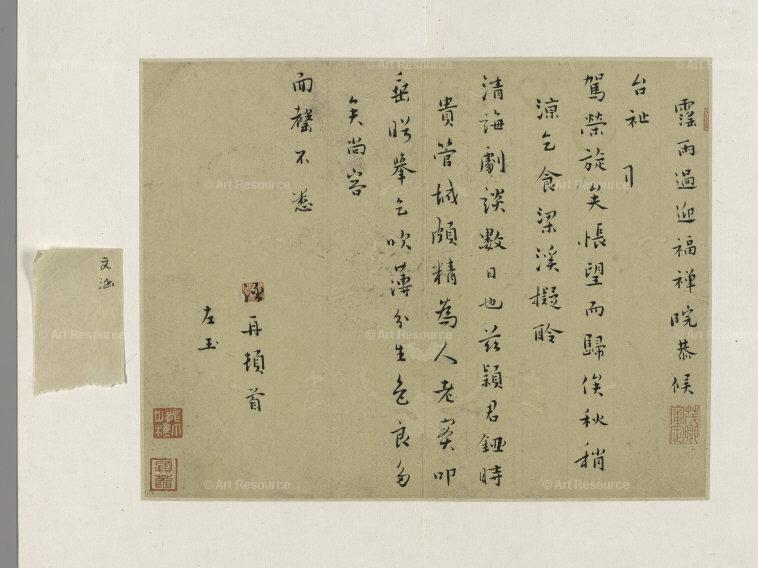 靈雨過迎福禅院恭候
台祉
駕榮旋矣悵望而歸俟秋稍
涼乞食梁溪擬聆
清誨劇談數日也茲穎君錘時
貴管城頗精為人老實叩
台
吹薄分生色良多
矣尚容
面罄不悉
再頓首
左玉
文涵
© Art Resource